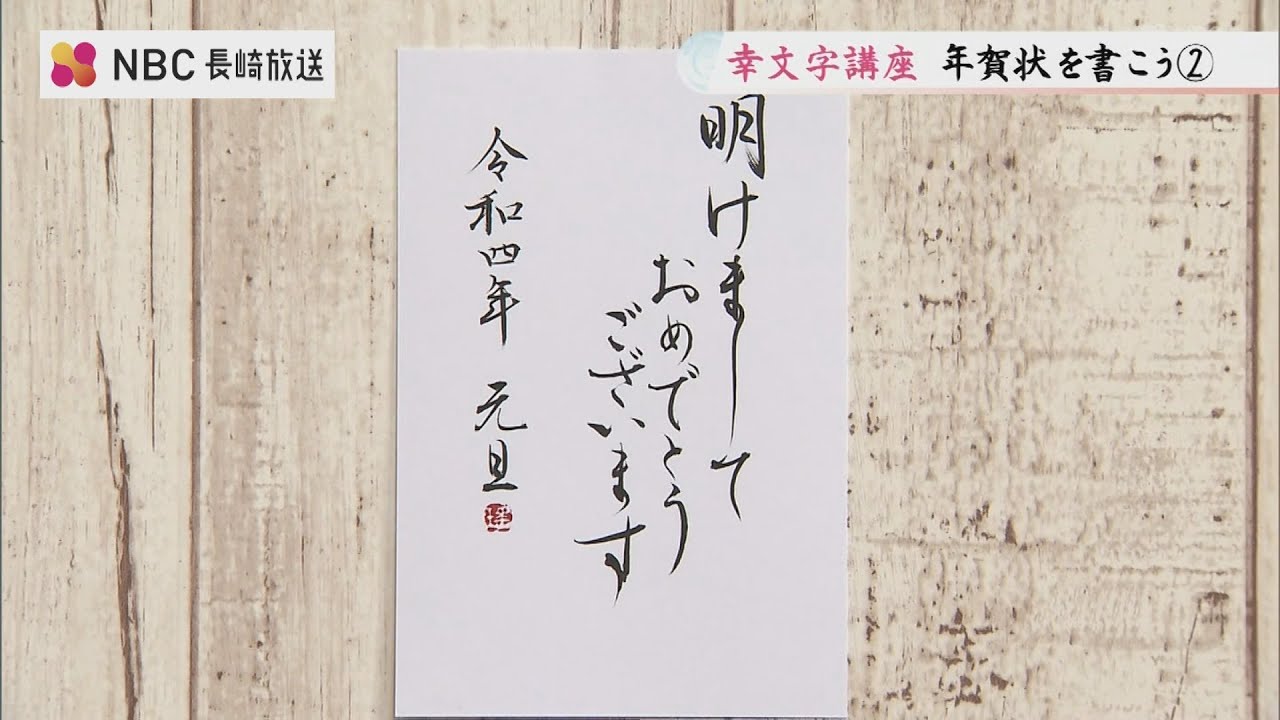 NBC 長崎放送
幸文字講座 年賀状を書こう②
明けまして
おめでとう
ございます
令和四年 元旦